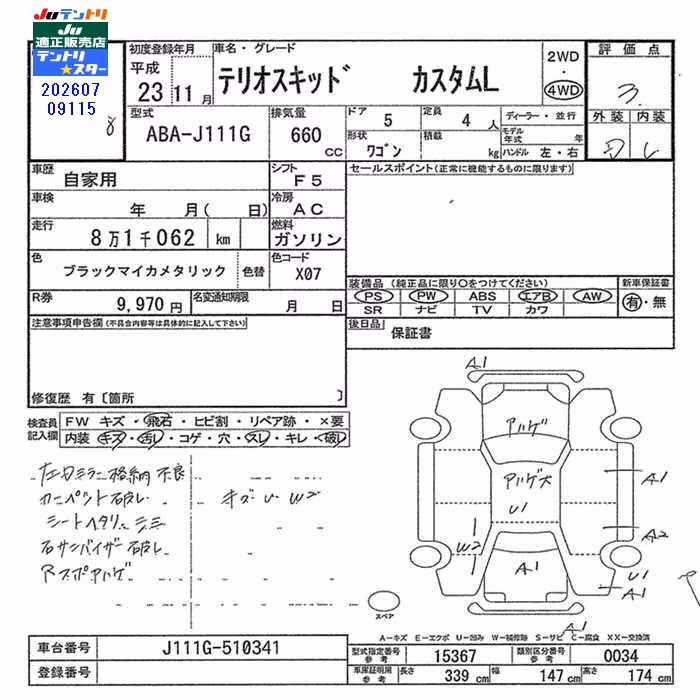 JUテントリ
JU
適正販売店
テントリ
★スター
202607
09115
初度登録年月
平成
23 11 月
車名・グレード
テリオスキッド カスタムL
2WD
・
4WD
評価点
3
外装 内装
型式
ABA-J111G
排気量
660
CC
ドア 5
定員 4 人
形状
ワゴン
積載
kg
ディーラー・並行
モデル年式 年
ハンドル 左・右
車歴
自家用
シフト
F5
車検
年 月( 日)
冷房
AC
走行
8万1千062 km
燃料
ガソリン
色
ブラックマイカメタリック
色替
色コード
X07
R券
9,970 円
名変通知期限
月 日
セールスポイント(正常に機能するものに限ります)
装備品 (純正品に限り○をつけてください)
PS PW ABS エアB AW
SR ナビ TV カワ
新車保証書
有・無
後日品
保証書
注意事項申告欄(不具合内容等は具体的に記入して下さい)
修復歴 有〔箇所 〕
検査員
記入欄
FW キズ・飛石・ヒビ割・リペア跡・×要
内装 キズ・汚レ・コゲ・穴・スレ・キレ・破レ
左ドアミラー格納不良
カーペント破レ
キズ U W2
シートヘタリ シミ
右サンバイザー破レ
Rスポアハゲ
A1
アハゲ
アハゲ大
U1
A1
A2
W2
A1
U1
A1
A1
スペア
A-キズ E-エクボ U-凹み W-補修跡 S-サビ C-腐食 XX-交換済
車台番号
J111G-510341
登録番号
型式指定番号
参考
15367
類別区分番号
参考
0034
車庫証明用
参考
長さ
339 cm
幅
147 cm
高さ
174 cm